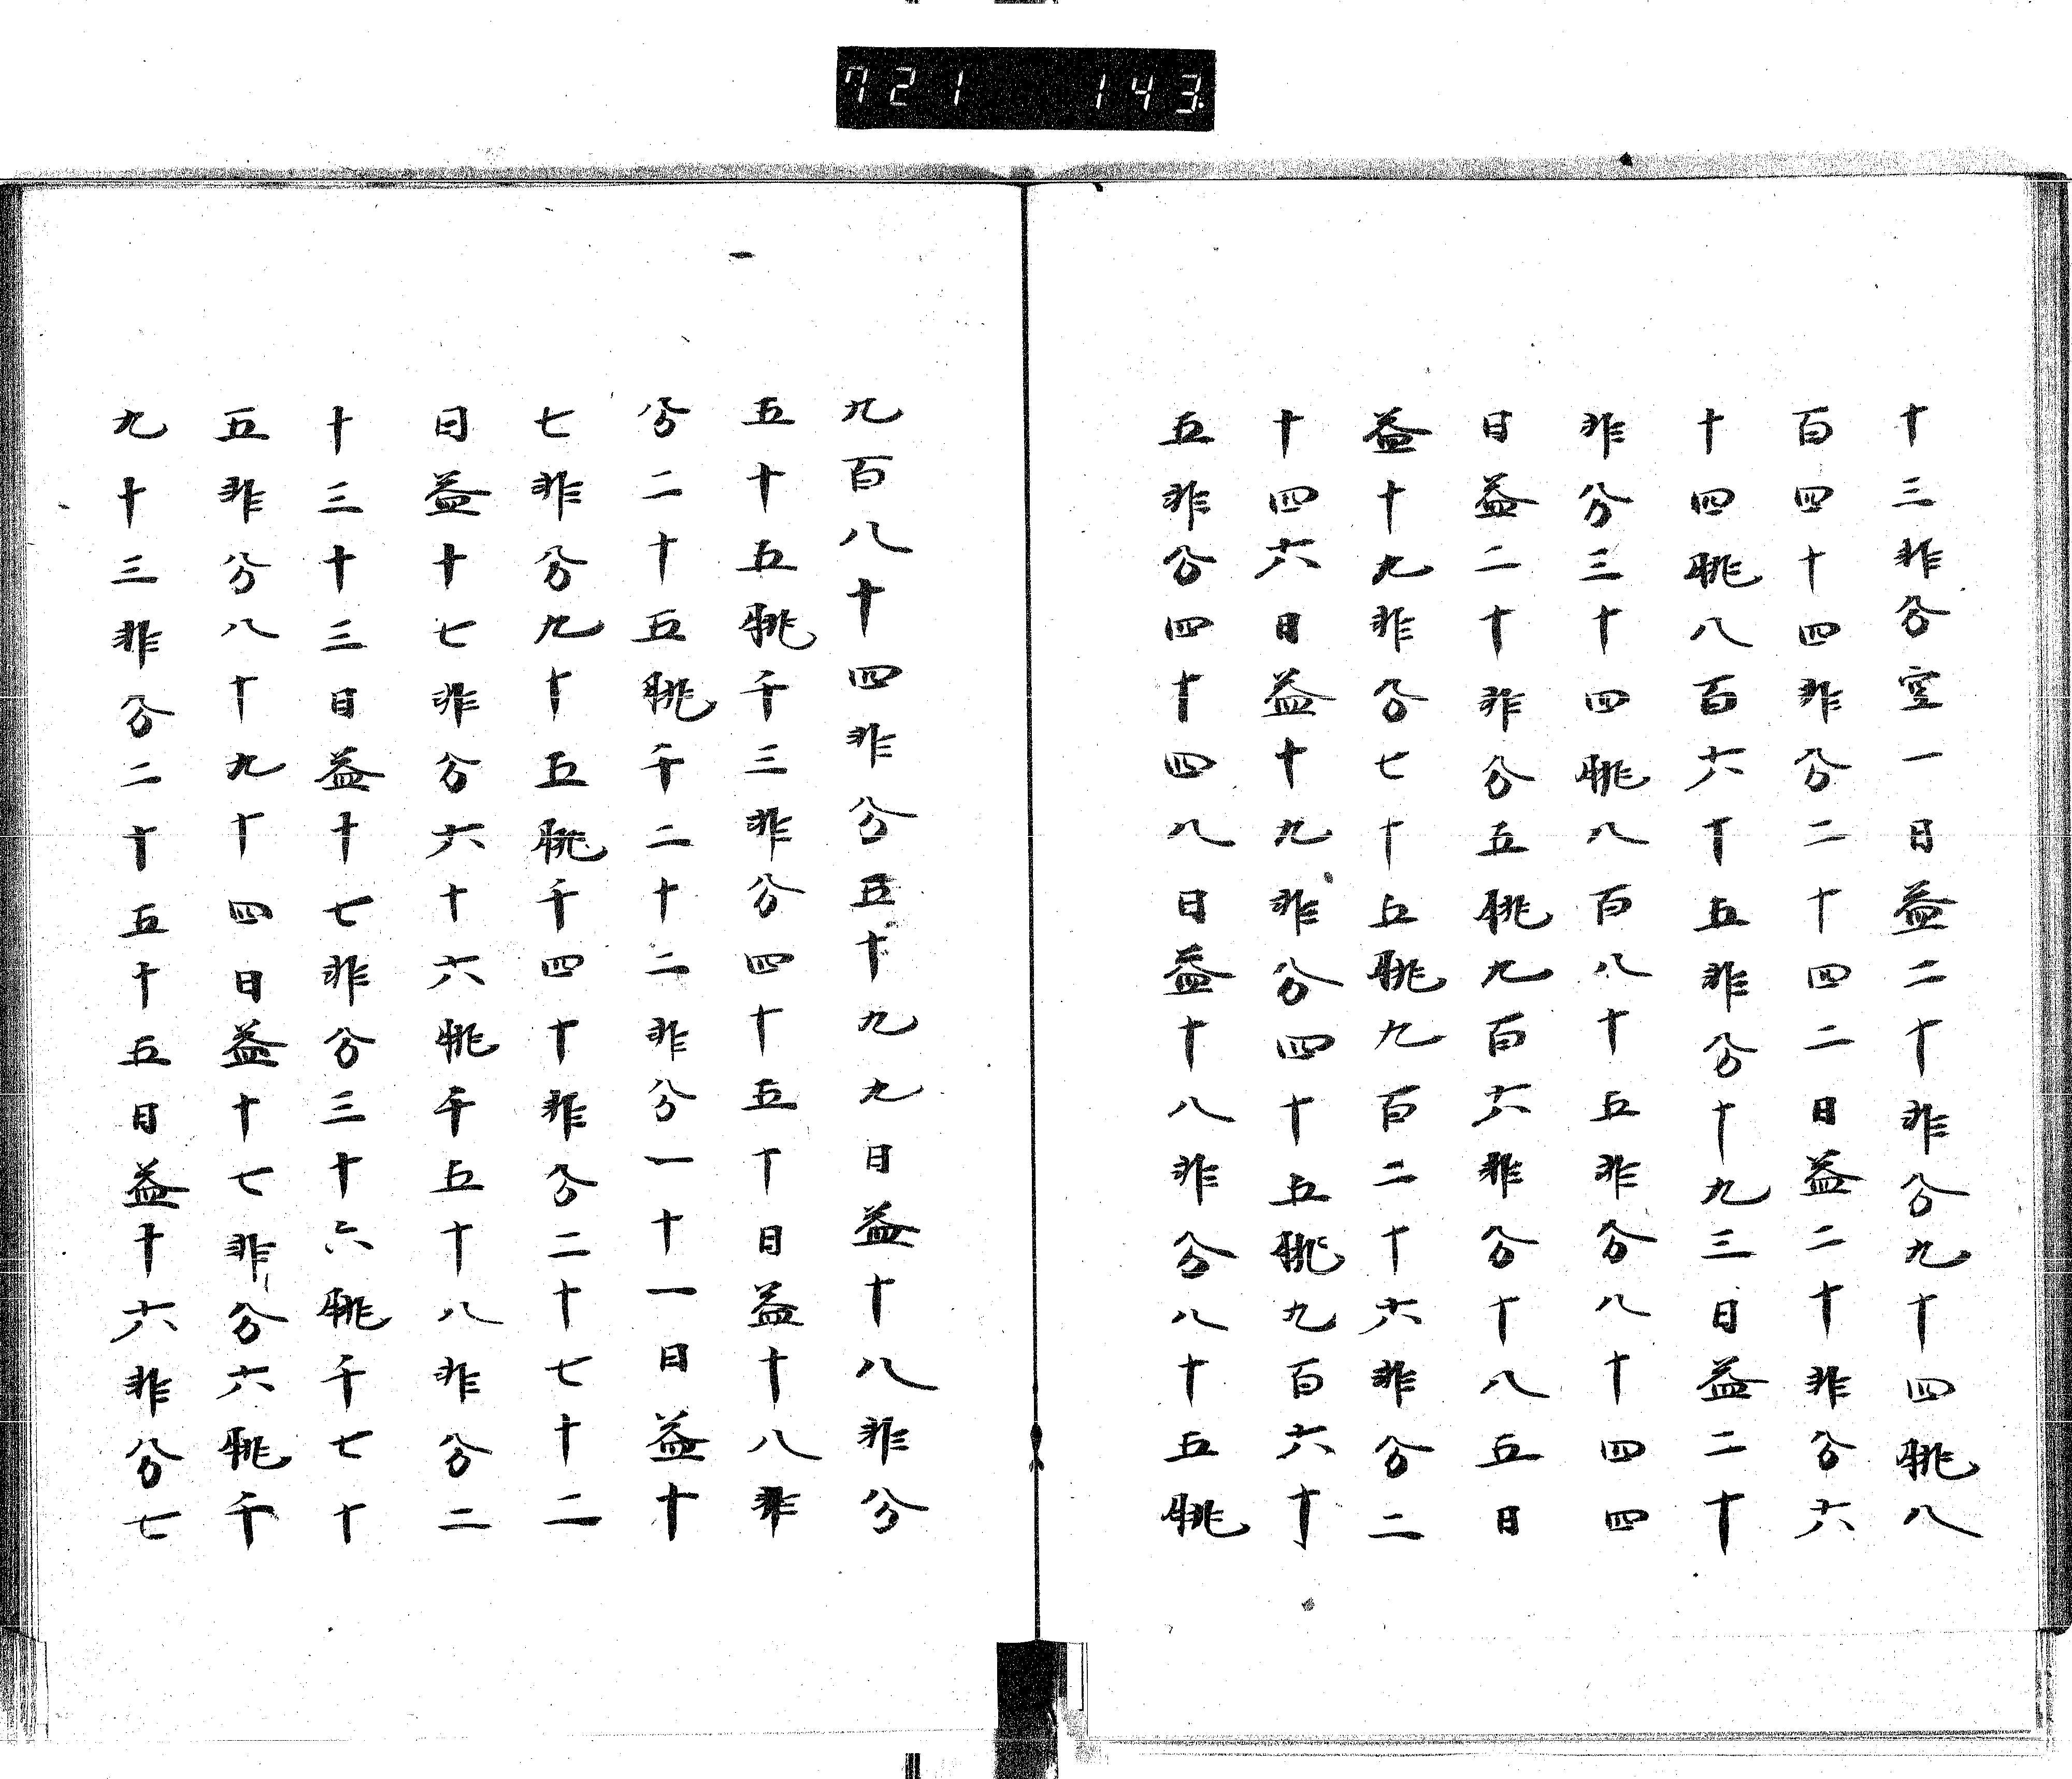 721 143
十三非分空一日益二十非分九十四朓八
百四十四非分二十四二日益二十非分六
十四朓八百六十五非分十九三日益二十
非分三十四朓八百八十五非分八十四四
日益二十非分五朓九百六非分十八五日
益十九非分七十五朓九百二十六非分二
十四六日益十九非分四十五朓九百六十
五非分四十四八日益十八非分八十五朓
九百八十四非分五十九九日益十八非分
五十五朓千三非分四十五十日益十八非
分二十五朓千二十二非分一十一日益十
七非分九十五朓千四十非分二十七十二
日益十七非分六十六朓千五十八非分二
十三十三日益十七非分三十六朓千七十
五非分八十九十四日益十七非分六朓千
九十三非分二十五十五日益十六非分七